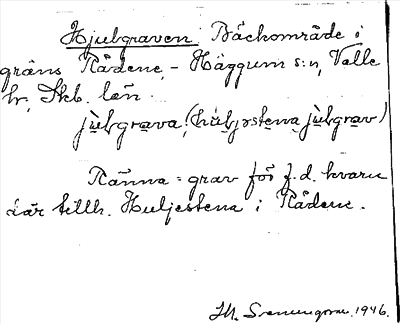 Hjulgraven Bäckområde i
gräns Rådene - Häggum s:n, Valle
hr, Skb. län.
jùlgrava, (hùljəstena jùlgrav)
Ränna = grav för f.d. kvarn
där tillh. Huljestena i Rådene.
1946.